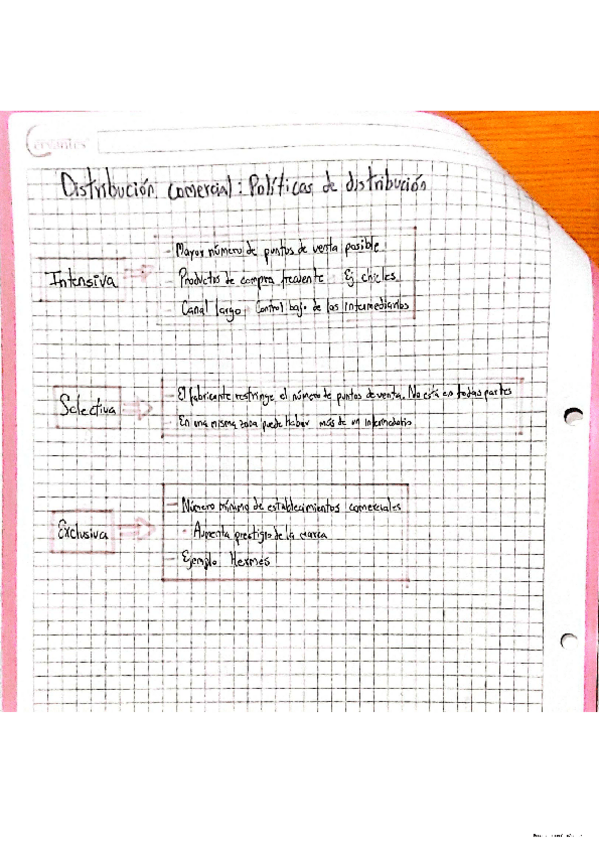 Cervantes
Distribución comercial: Políticas de distribución
Intensiva
- Mayor número de puntos de venta posible
- Productos de compra frecuente Ej chicles
- Canal largo, Control bajo de los intermediarios
Selectiva
- El fabricante restringe el número de puntos de venta. No está en todas partes
- En una misma zona puede haber más de un intermediario
Exclusiva
- Número mínimo de establecimientos comerciales
- Aumenta prestigio de la marca
- Ejemplo Hermés